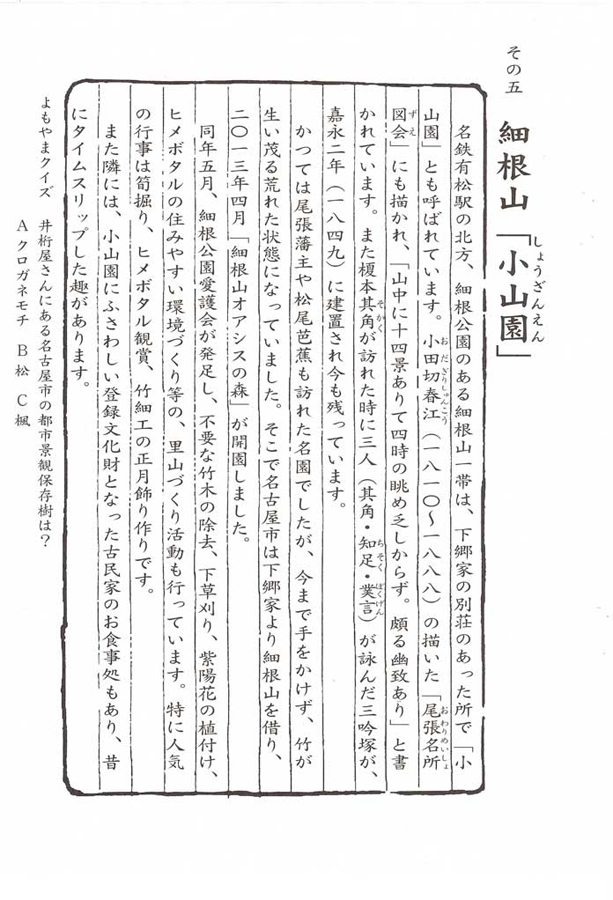 その五
細根山「小山園」
しょうざんえん
名鉄有松駅の北方、細根公園のある細根山一帯は、下郷家の別荘のあった所で「小
山園」とも呼ばれています。小田切春江(一八一〇~一八八八)の描いた「尾張名所
おだぎりしゅんこう
おわりめいしょ
図会」にも描かれ、「山中に十四景ありて四時の眺め乏しからず。頗る幽致あり」と書
ずえ
かれています。また榎本其角が訪れた時に三人(其角・知足・業言)が詠んだ三吟塚が、
そかく
ちそく
ぼくげん
嘉永二年(一八四九)に建置され今も残っています。
かつては尾張藩主や松尾芭蕉も訪れた名園でしたが、今まで手をかけず、竹が
生い茂る荒れた状態になっていました。そこで名古屋市は下郷家より細根山を借り、
二〇一三年四月「細根山オアシスの森」が開園しました。
同年五月、細根公園愛護会が発足し、不要な竹木の除去、下草刈り、紫陽花の植付け、
ヒメボタルの住みやすい環境づくり等の、里山づくり活動も行っています。特に人気
の行事は筍掘り、ヒメボタル観賞、竹細工の正月飾り作りです。
また隣には、小山園にふさわしい登録文化財となった古民家のお食事処もあり、昔
にタイムスリップした趣があります。
よもやまクイズ 井桁屋さんにある名古屋市の都市景観保存樹は?
Aクロガネモチ B松 C楓